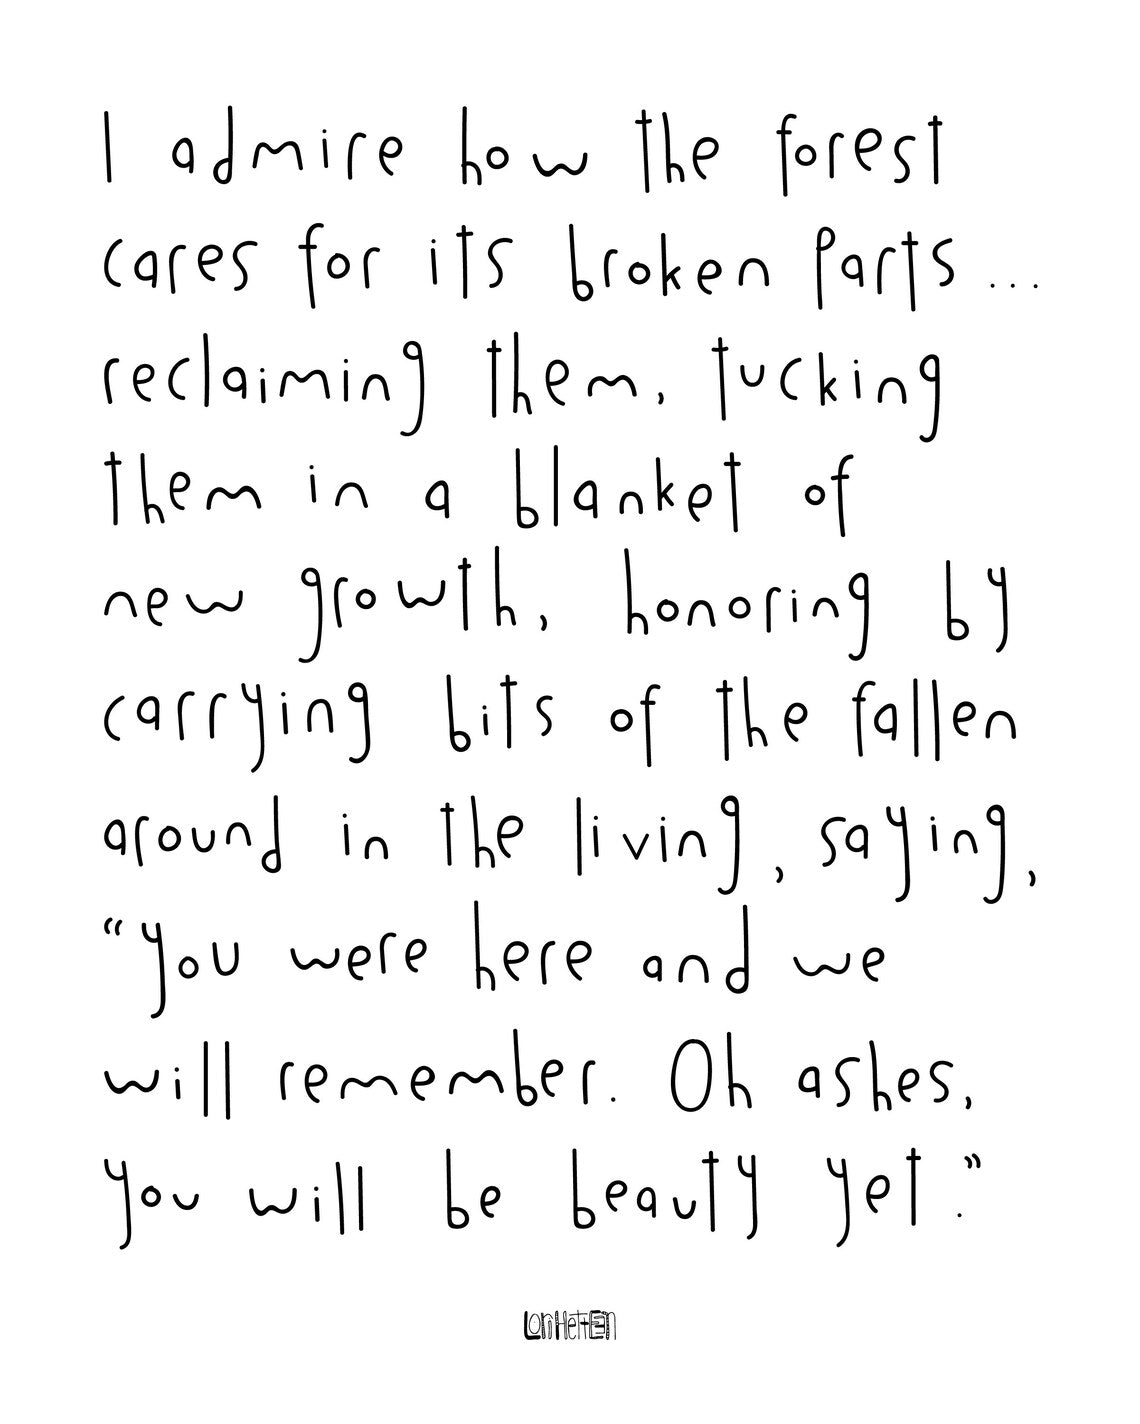 I admire how the forest
cares for its broken parts...
reclaiming them, tucking
them in a blanket of
new growth, honoring by
carrying bits of the fallen
around in the living, saying,
“you were here and we
will remember. Oh ashes,
you will be beauty yet.”
LORi HeTTEEn